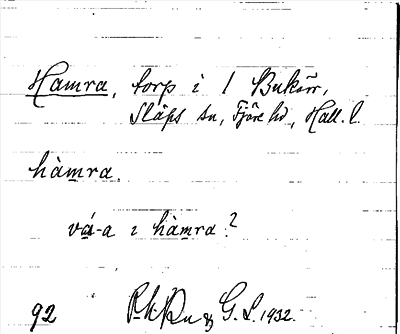 Hamra, torp i 1 Bukärr,
Släps sn, Fjäre hd, Hall. l.
hàmra.
vá-a i hàmra?
92 G. L. 1932.